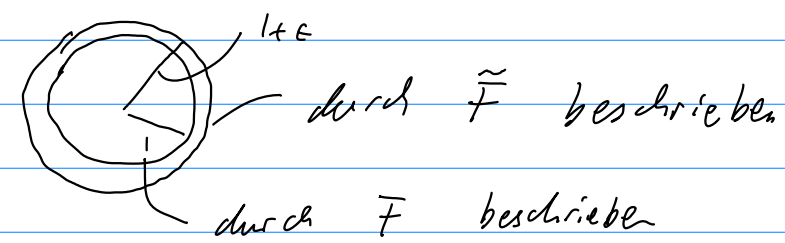 1+ε
durch F̃ beschrieben
1
durch F beschrieben